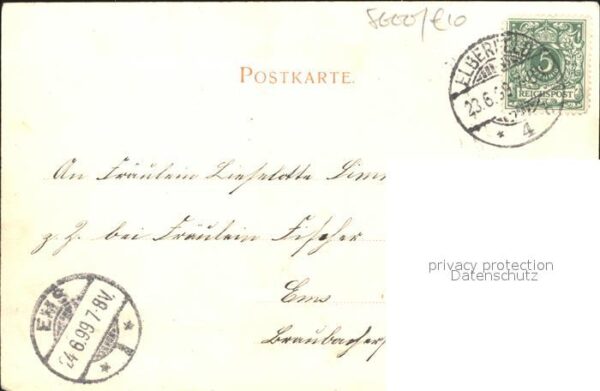 €10
POSTKARTE.
ELBERFELD
23.6.99
4
5
REICHSPOST
An Fräulein Lieselotte Simm
z. Z. bei Fräulein Fischer
Ems
Braubacher
privacy protection
Datenschutz
EMS
24.6.99 7-8V.